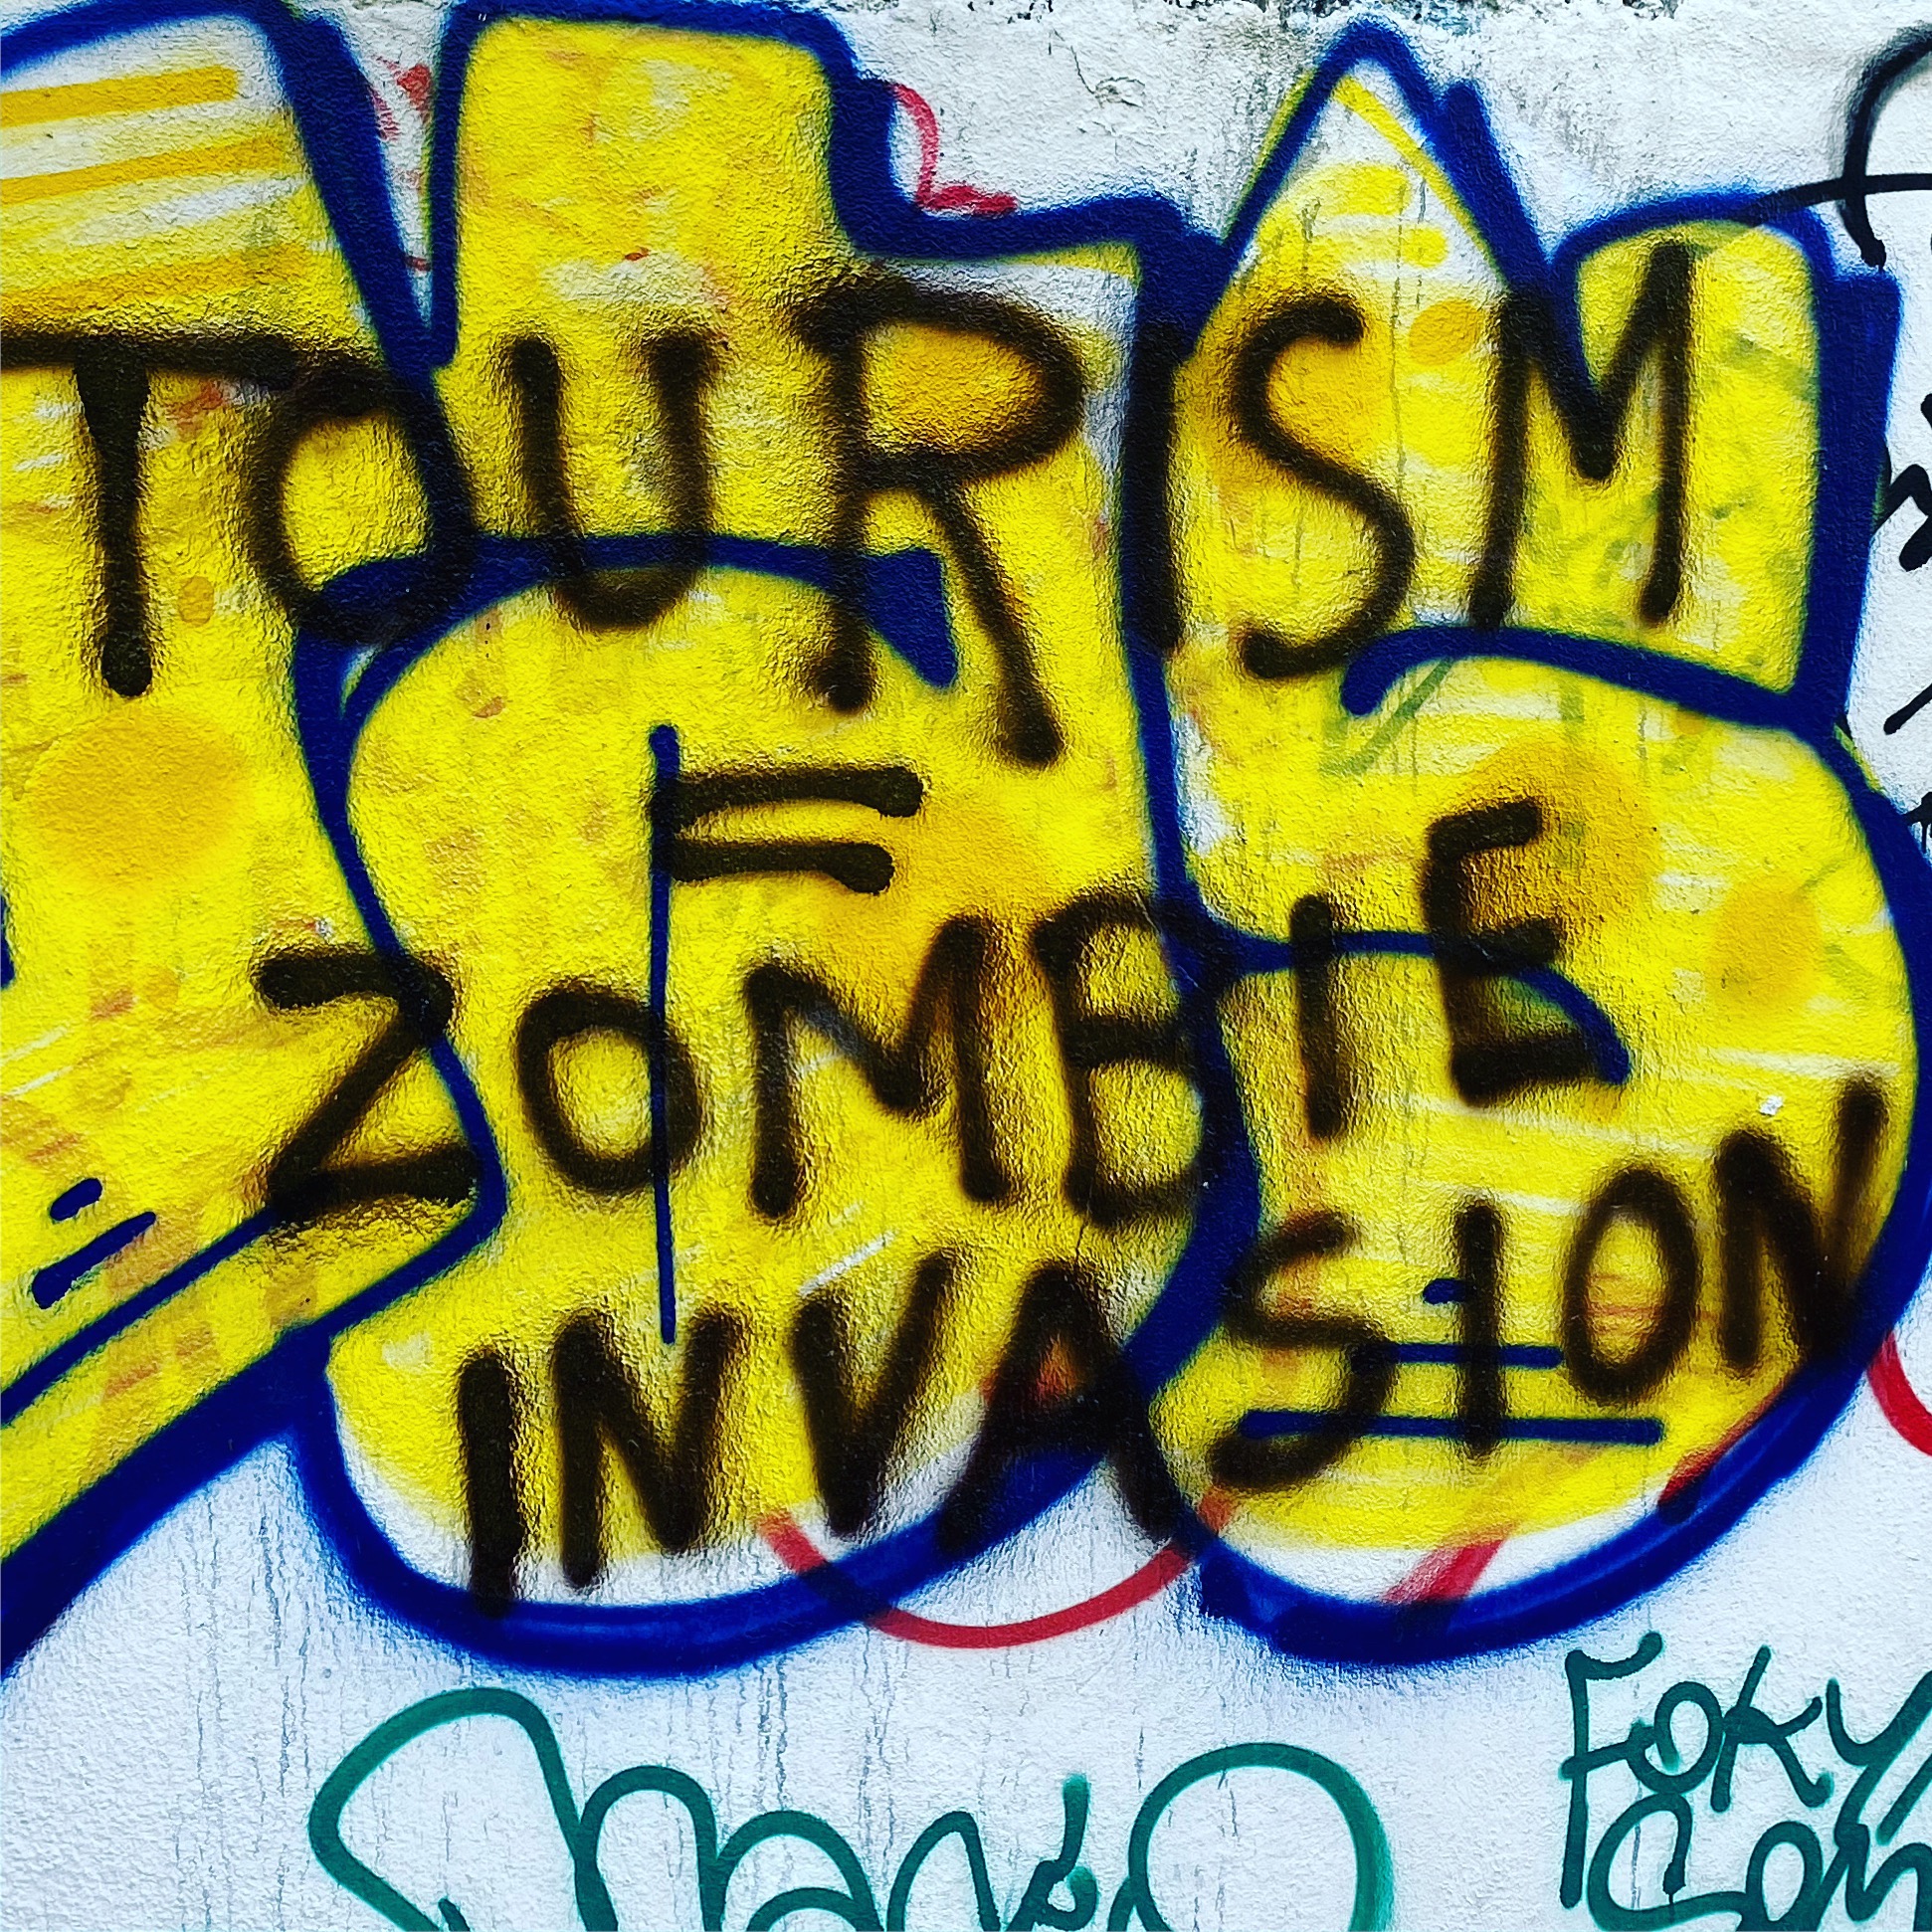 TOURISM
=
ZOMBIE
INVASION
FOKY